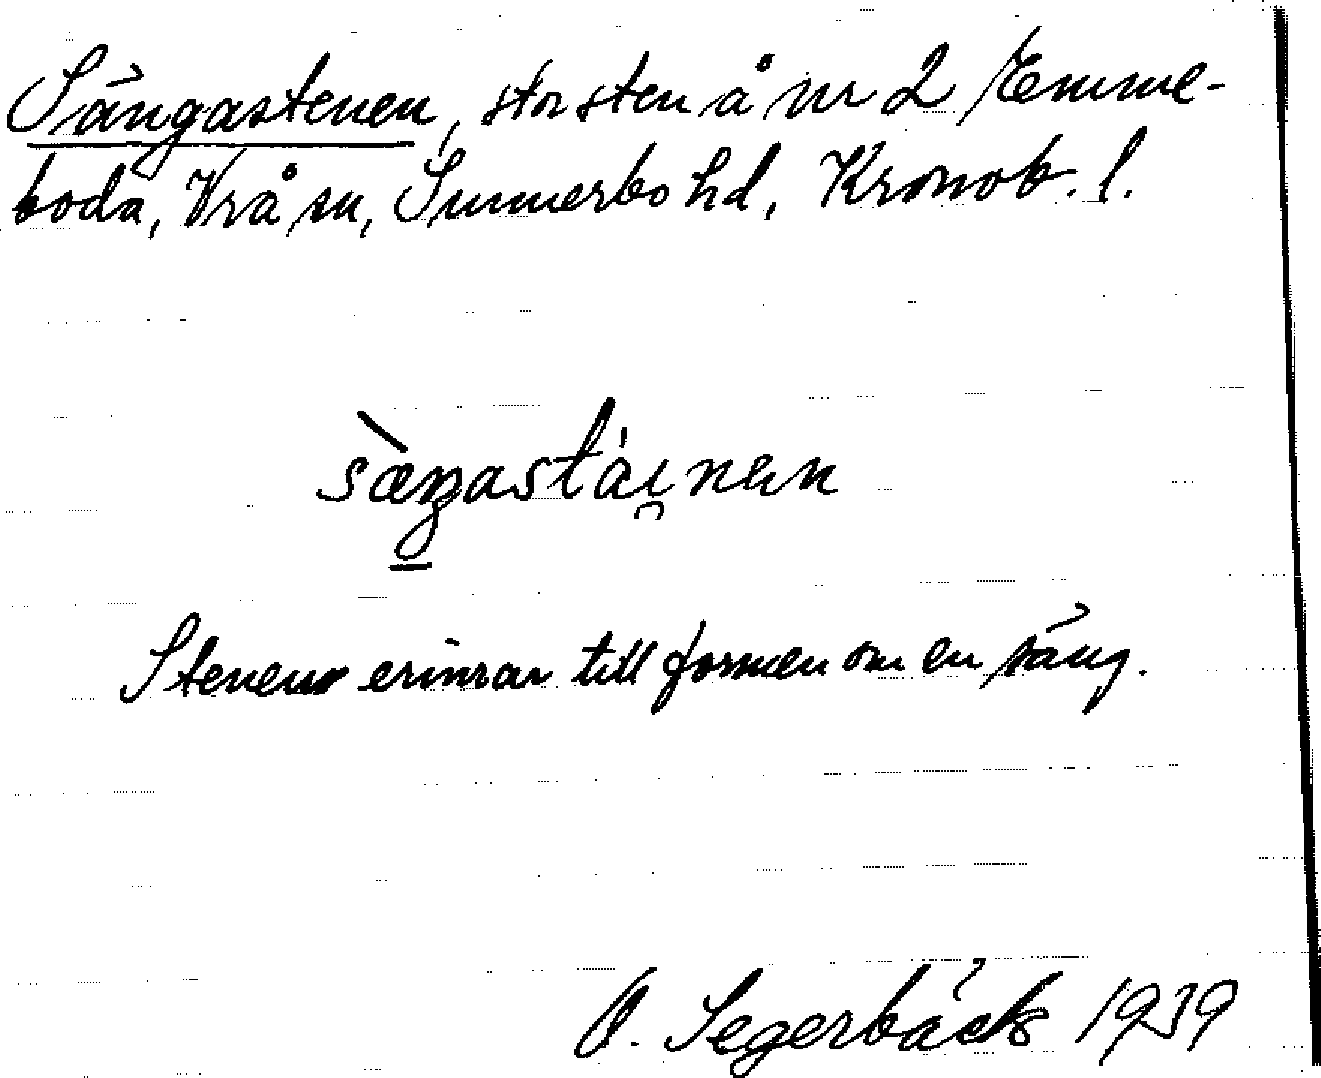 Sängastenen, stor sten å nr 2 Emme-
boda, Vrå sn, Sunnerbo hd, Kronob. l.
sæŋastái̯nen
Stenen erinrar till formen om en säng.
O. Segerbäck 1939